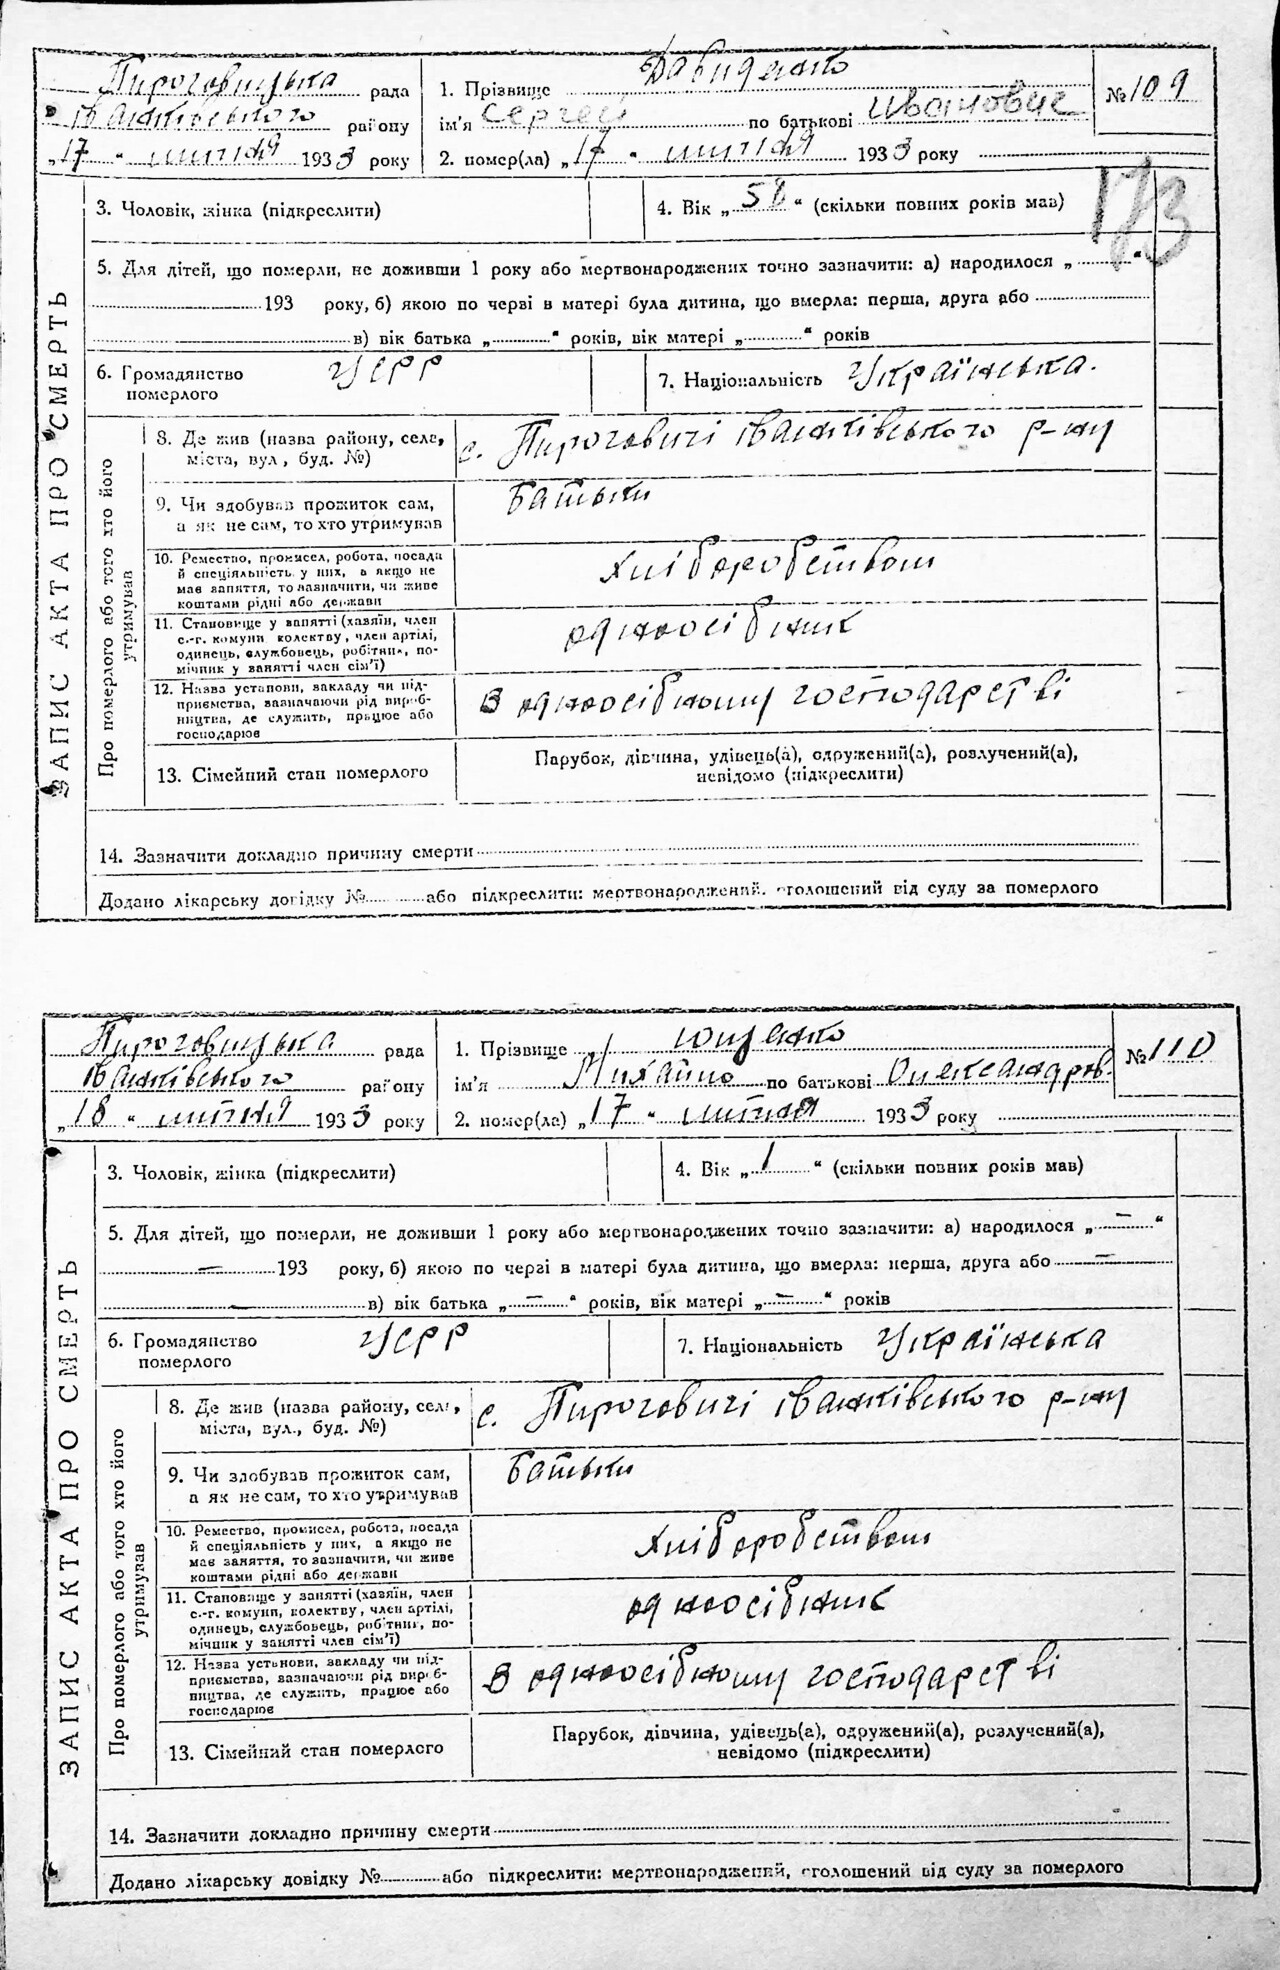 Пироговицька рада
Іванківського району
„17“ липня 1933 року
1. Прізвище Давиденко
ім'я Сергей по батькові Ивановис
2. помер(ла) „17“ липня 1933 року
№ 109
173
ЗАПИС АКТА ПРО СМЕРТЬ
3. Чоловік, жінка (підкреслити)
4. Вік „58“ (скільки повних років мав)
5. Для дітей, що померли, не доживши 1 року або мертвонароджених точно зазначити: а) народилося „ “
193 року, б) якою по черзі в матері була дитина, що вмерла: перша, друга або
в) вік батька „ “ років, вік матері „ “ років
6. Громадянство
померлого
УСРР
7. Національність Українська.
Про померлого або того хто його
утримував
8. Де жив (назва району, села,
міста, вул., буд. №)
с. Пироговичі Іванківського р-ну
9. Чи здобував прожиток сам,
а як не сам, то хто утримував
Батьки
10. Ремество, промисел, робота, посада
й спеціяльність у них, а якщо не
має заняття, то зазначити, чи живе
коштами рідні або держави
хліборобством
11. Становище у занятті (хазяїн, член
с.-г. комуни колектву, член артілі,
одинець, службовець, робітник, по-
мічник у занятті член сім'ї)
одноосібник
12. Назва установи, закладу чи під-
приємства, зазначаючи рід вироб-
ництва, де служить, працює або
господарює
В одноосібному господарстві
13. Сімейний стан померлого
Парубок, дівчина, удівець(а), одружений(а), розлучений(а),
невідомо (підкреслити)
14. Зазначити докладно причину смерти
Додано лікарську довідку № або підкреслити: мертвонароджений, оголошений від суду за померлого
Пироговицька рада
Іванківського району
„18“ липня 1933 року
1. Прізвище Ющенко
ім'я Михайло по батькові Олександров.
2. помер(ла) „17“ липня 1933 року
№ 110
ЗАПИС АКТА ПРО СМЕРТЬ
3. Чоловік, жінка (підкреслити)
4. Вік „1“ (скільки повних років мав)
5. Для дітей, що померли, не доживши 1 року або мертвонароджених точно зазначити: а) народилося „—“
— 193 року, б) якою по черзі в матері була дитина, що вмерла: перша, друга або —
— в) вік батька „—“ років, вік матері „—“ років
6. Громадянство
померлого
УСРР
7. Національність Українська
Про померлого або того хто його
утримував
8. Де жив (назва району, села,
міста, вул., буд. №)
с. Пироговичі Іванківського р-ну
9. Чи здобував прожиток сам,
а як не сам, то хто утримував
Батьки
10. Ремество, промисел, робота, посада
й спеціяльність у них, а якщо не
має заняття, то зазначити, чи живе
коштами рідні або держави
хліборобством
11. Становище у занятті (хазяїн, член
с.-г. комуни, колектву, член артілі,
одинець, службовець, робітник, по-
мічник у занятті член сім'ї)
одноосібник
12. Назва установи, закладу чи під-
приємства, зазначаючи рід вироб-
ництва, де служить, працює або
господарює
В одноосібному господарстві
13. Сімейний стан померлого
Парубок, дівчина, удівець(а), одружений(а), розлучений(а),
невідомо (підкреслити)
14. Зазначити докладно причину смерти
Додано лікарську довідку № або підкреслити: мертвонароджений, оголошений від суду за померлого